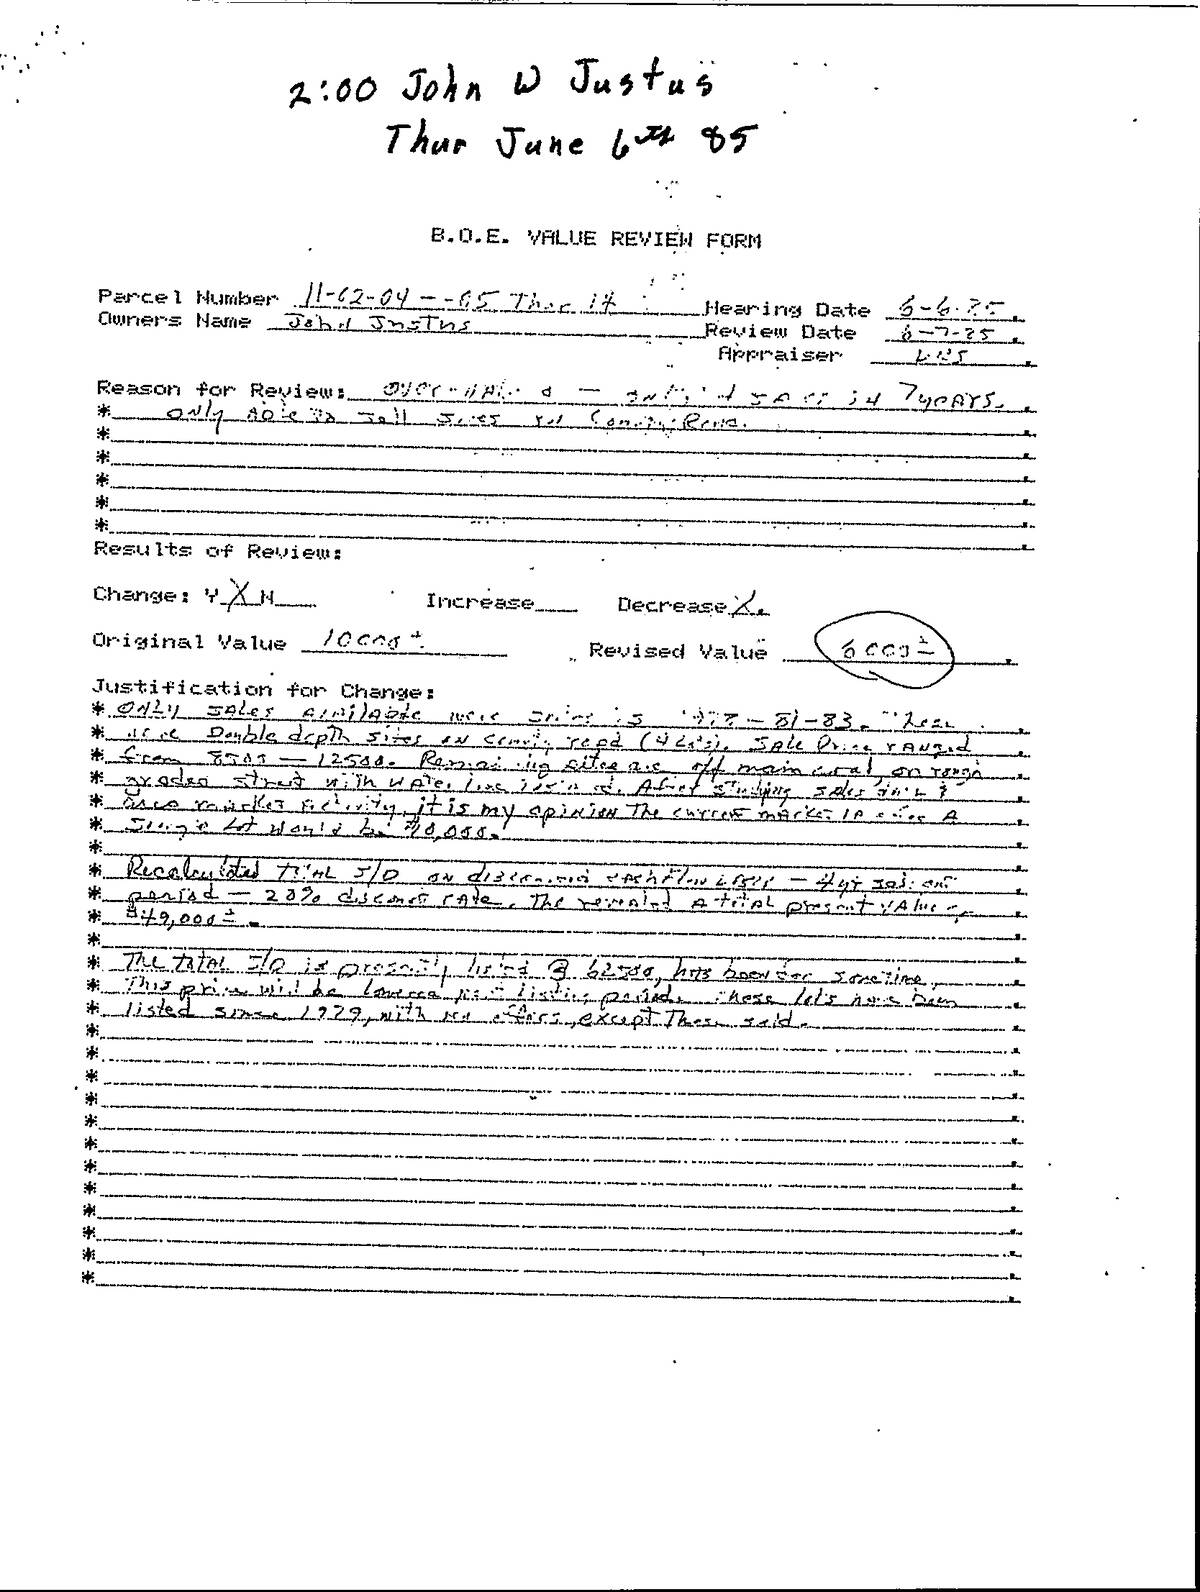 2:00 John W Justus
Thur June 6th 85
B.O.E. VALUE REVIEW FORM
Parcel Number 11-62-04--05 Thur 14
Hearing Date 6-6-85.
Owners Name John Justus
Review Date 6-7-85.
Appraiser
Reason for Review: in 7 years.
* Only Able to Sell Sites on County Road.
*
*
*
*
*
Results of Review:
Change: Y X N Increase Decrease X.
Original Value 10000 ±
Revised Value 6000 ±
Justification for Change:
* Only sales available were - 81-83. These
* were Double depth sites on county road (4 Lots). Sale Price ranged
* from 8500 — 12500. Remaining sites are off main road, on rough
* graded street with water line. After studying sales &
* area market activity, it is my opinion The current market A
* Single Lot would be $10,000.
*
* Recalculated total S/D on discounted cashflow — 4 yr
* period — 20% discount rate. The revealed A total present value
* $49,000 ±.
*
* The total S/D is presently listed @ 62500, has been for sometime.
* This price will be lowered next listing period. These lots have been
* listed since 1979, with no offers, except Those sold.
*
*
*
*
*
*
*
*
*
*
*
*